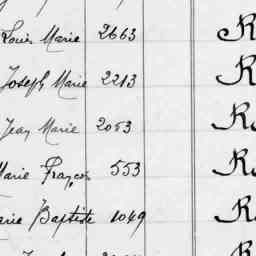 Louis Marie 2663 R
Joseph Marie 2213 R
Jean Marie 2053 R
Marie François 553 R
Marie Baptiste 1049 R